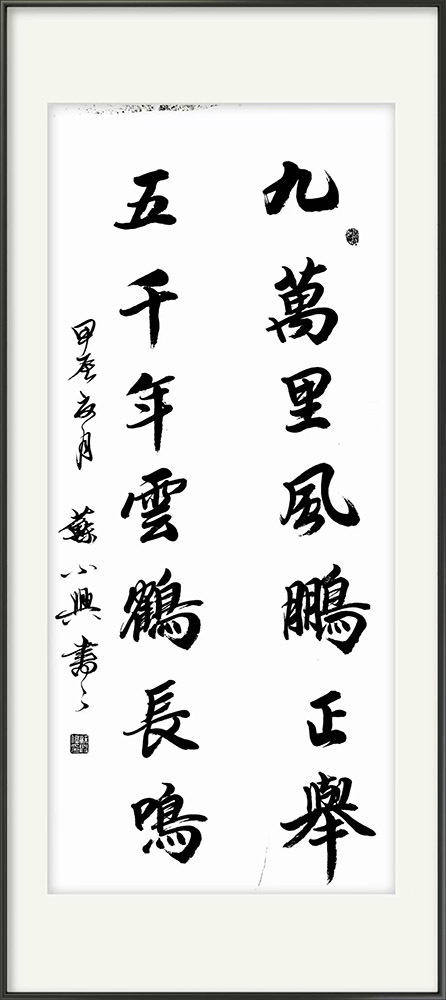 九萬里風鵬正舉
五千年雲鶴長鳴
甲辰六月 蘇小興書